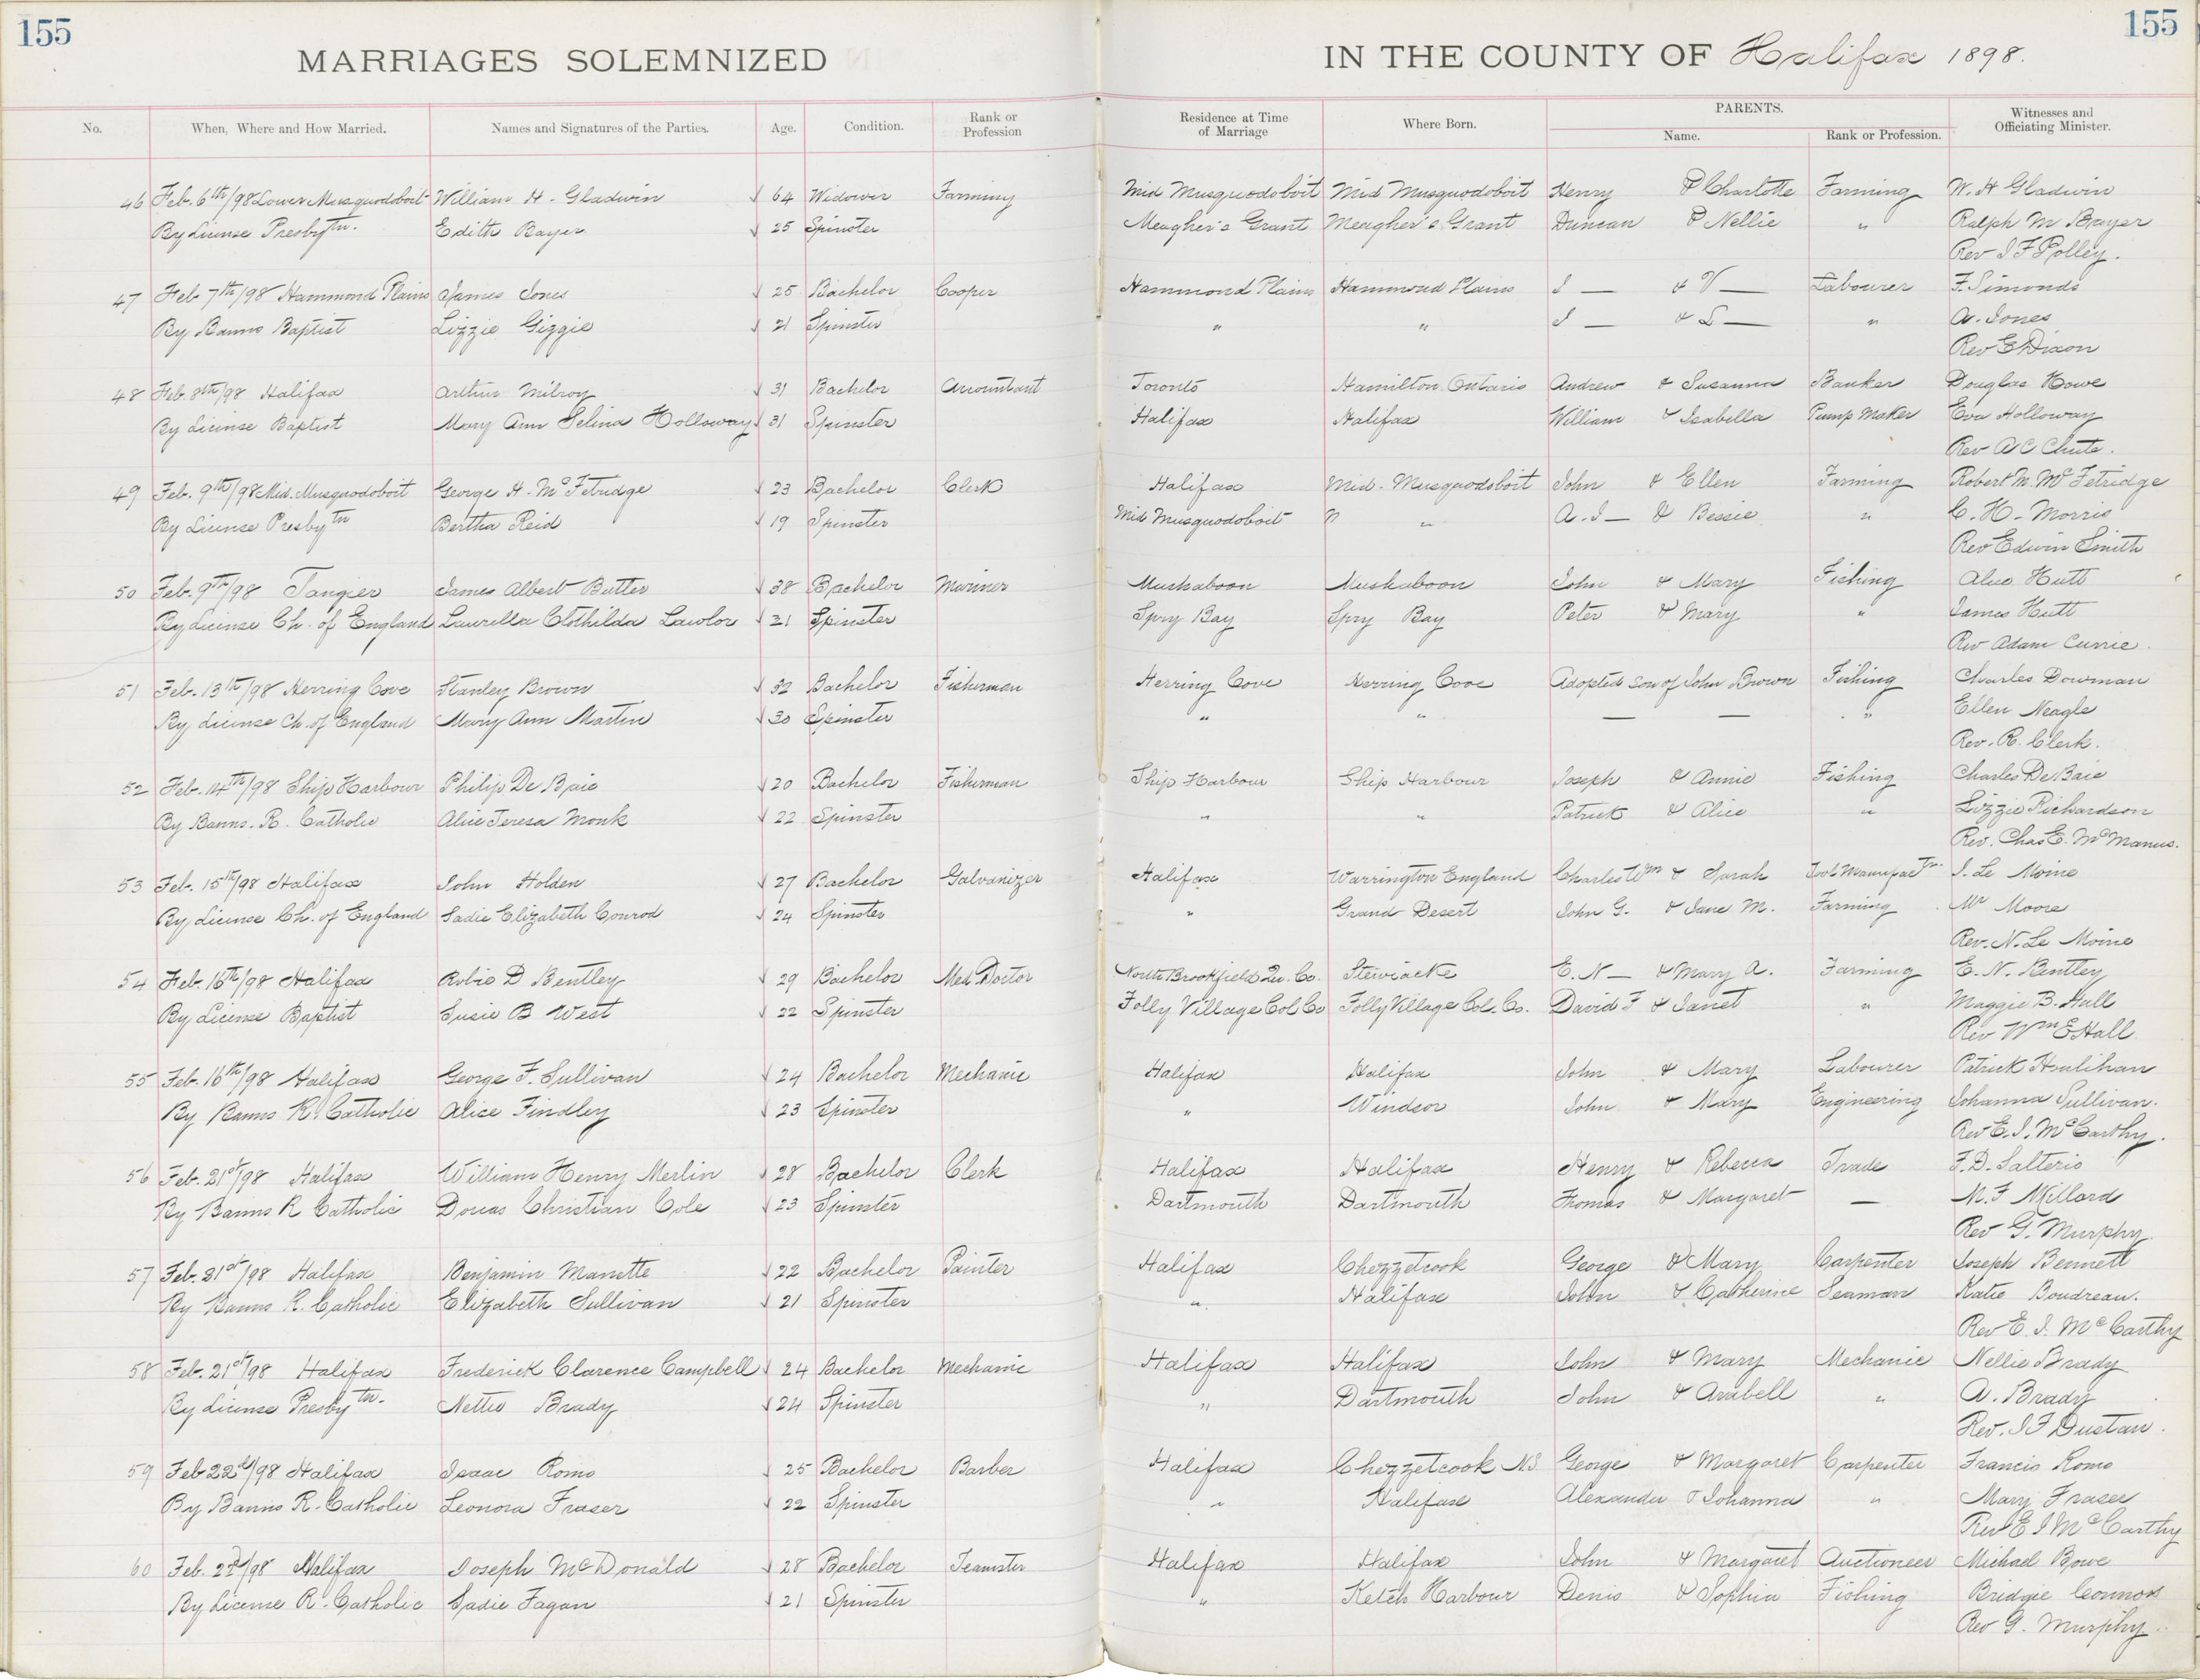 155
155
MARRIAGES SOLEMNIZED IN THE COUNTY OF Halifax 1898.
No. When, Where and How Married. Names and Signatures of the Parties. Age. Condition. Rank or Profession Residence at Time of Marriage Where Born. PARENTS. Name. Rank or Profession. Witnesses and Officiating Minister.
46 Feb. 6th/98 Lower Musquodoboit William H. Gladwin 64 Widower Farming Mid Musquodoboit Mid Musquodoboit Henry & Charlotte Farming W. H Gladwin
By License Presbytn. Edith Bayer 25 Spinster Meagher's Grant Meagher's Grant Duncan & Nellie " Ralph M Bayer
Rev J F Polley.
47 Feb 7th/98 Hammond Plains James Jones 25 Bachelor Cooper Hammond Plains Hammond Plains J — & V — Labourer F. Simonds
By Banns Baptist Lizzie Gizzie 21 Spinster " " J — & L — " A. Jones
Rev E Dixon
48 Feb 8th/98 Halifax Arthur Milroy 31 Bachelor Accountant Toronto Hamilton Ontario Andrew & Susanna Banker Douglas Howe
By License Baptist Mary Ann Selina Holloway 31 Spinster Halifax Halifax William & Isabella Pump Maker Eva Holloway
Rev A C Chute.
49 Feb. 9th/98 Mid. Musquodoboit George H. McFetridge 23 Bachelor Clerk Halifax Mid. Musquodoboit John & Ellen Farming Robert M. McFetridge
By License Presbytn Bertha Reid 19 Spinster Mid Musquodoboit " " A. J — & Bessie " C. H. Morris
Rev Edwin Smith
50 Feb. 9th/98 Tangier James Albert Butler 38 Bachelor Mariner Mushaboon Mushaboon John & Mary Fishing Alno Hutt
By License Ch. of England Laurella Clothilda Lawlor 21 Spinster Spry Bay Spry Bay Peter & Mary " James Hutt
Rev Adam Currie.
51 Feb. 13th/98 Herring Cove Stanley Brown 32 Bachelor Fisherman Herring Cove Herring Cove Adopted son of John Brown Fishing Charles Dowman
By License Ch. of England Mary Ann Martin 30 Spinster " " — — " Ellen Neagle
Rev. R. Clerk.
52 Feb. 14th/98 Ship Harbour Philip De Baie 20 Bachelor Fisherman Ship Harbour Ship Harbour Joseph & Annie Fishing Charles DeBaie
By Banns. R. Catholic Alice Teresa Monk 22 Spinster " " Patrick & Alice " Lizzie Richardson
Rev. Chas E. McManus.
53 Feb. 15th/98 Halifax John Holden 27 Bachelor Galvanizer Halifax Warrington England Charles Wm & Sarah Tool Manufactr. J. Le Moine
By License Ch. of England Sadie Elizabeth Conrod 24 Spinster " Grand Desert John G. & Jane M. Farming Mr Moore
Rev. N. Le Moine
54 Feb. 16th/98 Halifax Robie D Bentley 29 Bachelor Med. Doctor North Brookfield Qu. Co. Stewiacke E. N — & Mary A. Farming E. N. Bentley
By License Baptist Susie B West 22 Spinster Folly Village Col Co Folly Village Col. Co. David F & Janet " Maggie B. Hall
Rev Wm E Hall
55 Feb. 16th/98 Halifax George F. Sullivan 24 Bachelor Mechanic Halifax Halifax John & Mary Labourer Patrick Houlihan
By Banns R. Catholic Alice Findley 23 Spinster " Windsor John & Mary Engineering Johanna Sullivan.
Rev E. J. McCarthy.
56 Feb. 21st/98 Halifax William Henry Merlin 28 Bachelor Clerk Halifax Halifax Henry & Rebecca Trade F. D. Salterio
By Banns R Catholic Dorcas Christian Cole 23 Spinster Dartmouth Dartmouth Thomas & Margaret — M. F Millard
Rev G. Murphy.
57 Feb. 21st/98 Halifax Benjamin Manette 22 Bachelor Painter Halifax Chezzetcook George & Mary Carpenter Joseph Bennett
By Banns R. Catholic Elizabeth Sullivan 21 Spinster " Halifax John & Catherine Seaman Katie Boudreau.
Rev E. J. McCarthy
58 Feb. 21st/98 Halifax Frederick Clarence Campbell 24 Bachelor Mechanic Halifax Halifax John & Mary Mechanic Nellie Brady
By License Presbytn. Nettie Brady 24 Spinster " Dartmouth John & Arabell " A. Brady
Rev. J F Dustan.
59 Feb 22d/98 Halifax Isaac Romo 25 Bachelor Barber Halifax Chezzetcook N.S. George & Margaret Carpenter Francis Romo
By Banns R. Catholic Leonora Fraser 22 Spinster " Halifax Alexander & Johanna " Mary Fraser
Rev E J McCarthy
60 Feb. 22d/98 Halifax Joseph McDonald 28 Bachelor Teamster Halifax Halifax John & Margaret Auctioneer Michael Bowe
By License R. Catholic Sadie Fagan 21 Spinster " Ketch Harbour Denis & Sophia Fishing Bridgie Connors
Rev G. Murphy.